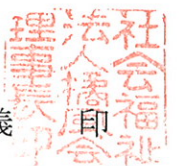 社会福祉
法人橘会
理事長印
印